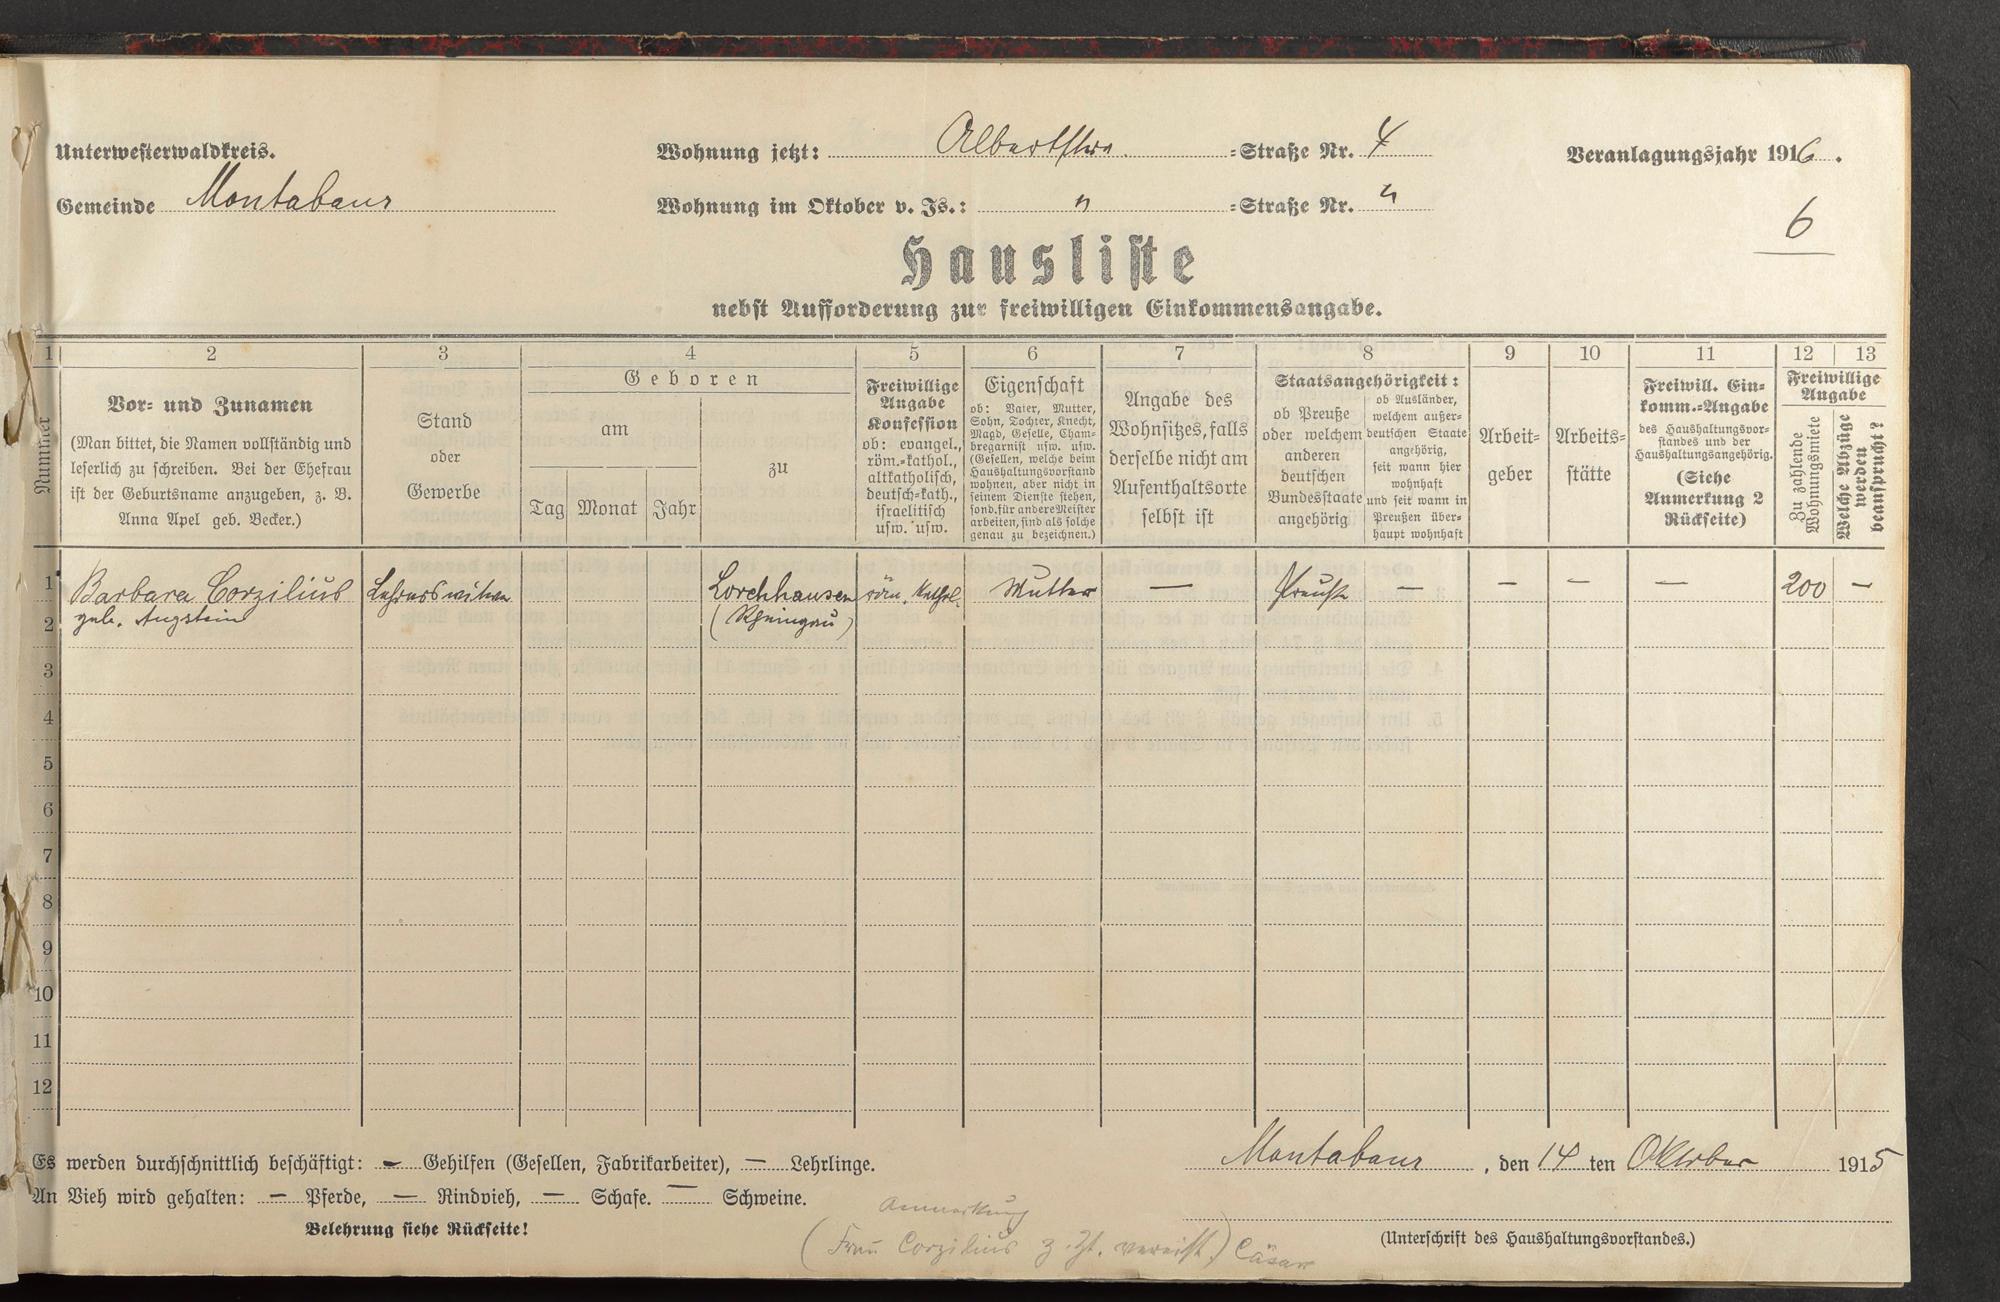 Unterwesterwaldkreis.
Wohnung jetzt: Albertstra. =Straße Nr. 4
Veranlagungsjahr 1916.
Gemeinde Montabaur
Wohnung im Oktober v. Js.: " =Straße Nr. "
6
Hausliste
nebst Aufforderung zur freiwilligen Einkommensangabe.
1 2 3 4 5 6 7 8 9 10 11 12 13
Nummer
Vor- und Zunamen
(Man bittet, die Namen vollständig und
leserlich zu schreiben. Bei der Ehefrau
ist der Geburtsname anzugeben, z. B.
Anna Apel geb. Becker.)
Stand
oder
Gewerbe
Geboren
am
Tag Monat Jahr
zu
Freiwillige
Angabe
Konfession
ob: evangel.,
röm.-kathol.,
altkatholisch,
deutsch-kath.,
israelitisch
usw. usw.
Eigenschaft
ob: Vater, Mutter,
Sohn, Tochter, Knecht,
Magd, Geselle, Cham-
bregarnist usw. usw.
(Gesellen, welche beim
Haushaltungsvorstand
wohnen, aber nicht in
seinem Dienste stehen,
sond. für andere Meister
arbeiten, sind als solche
genau zu bezeichnen.)
Angabe des
Wohnsitzes, falls
derselbe nicht am
Aufenthaltsorte
selbst ist
Staatsangehörigkeit:
ob Preuße
oder welchem
anderen
deutschen
Bundesstaate
angehörig
ob Ausländer,
welchem außer-
deutschen Staate
angehörig,
seit wann hier
wohnhaft
und seit wann in
Preußen über-
haupt wohnhaft
Arbeit-
geber
Arbeits-
stätte
Freiwill. Ein-
komm.-Angabe
des Haushaltungsvor-
standes und der
Haushaltungsangehörig.
(Siehe
Anmerkung 2
Rückseite)
Freiwillige
Angabe
Zu zahlende
Wohnungsmiete
Welche Abzüge
werden
beansprucht?
1 Barbara Corzilius Lehrerswitwe Lorchhausen röm. kathol. Mutter — Preuße — — — — 200 —
2 geb. Augstein (Rheingau)
3
4
5
6
7
8
9
10
11
12
Montabaur, den 14 ten Oktober 1915
Es werden durchschnittlich beschäftigt: — Gehilfen (Gesellen, Fabrikarbeiter), — Lehrlinge.
An Vieh wird gehalten: — Pferde, — Rindvieh, — Schafe. — Schweine.
Belehrung siehe Rückseite!
Anmerkung
(Frau Corzilius z. Zt. verreist.) Cäsar
(Unterschrift des Haushaltungsvorstandes.)